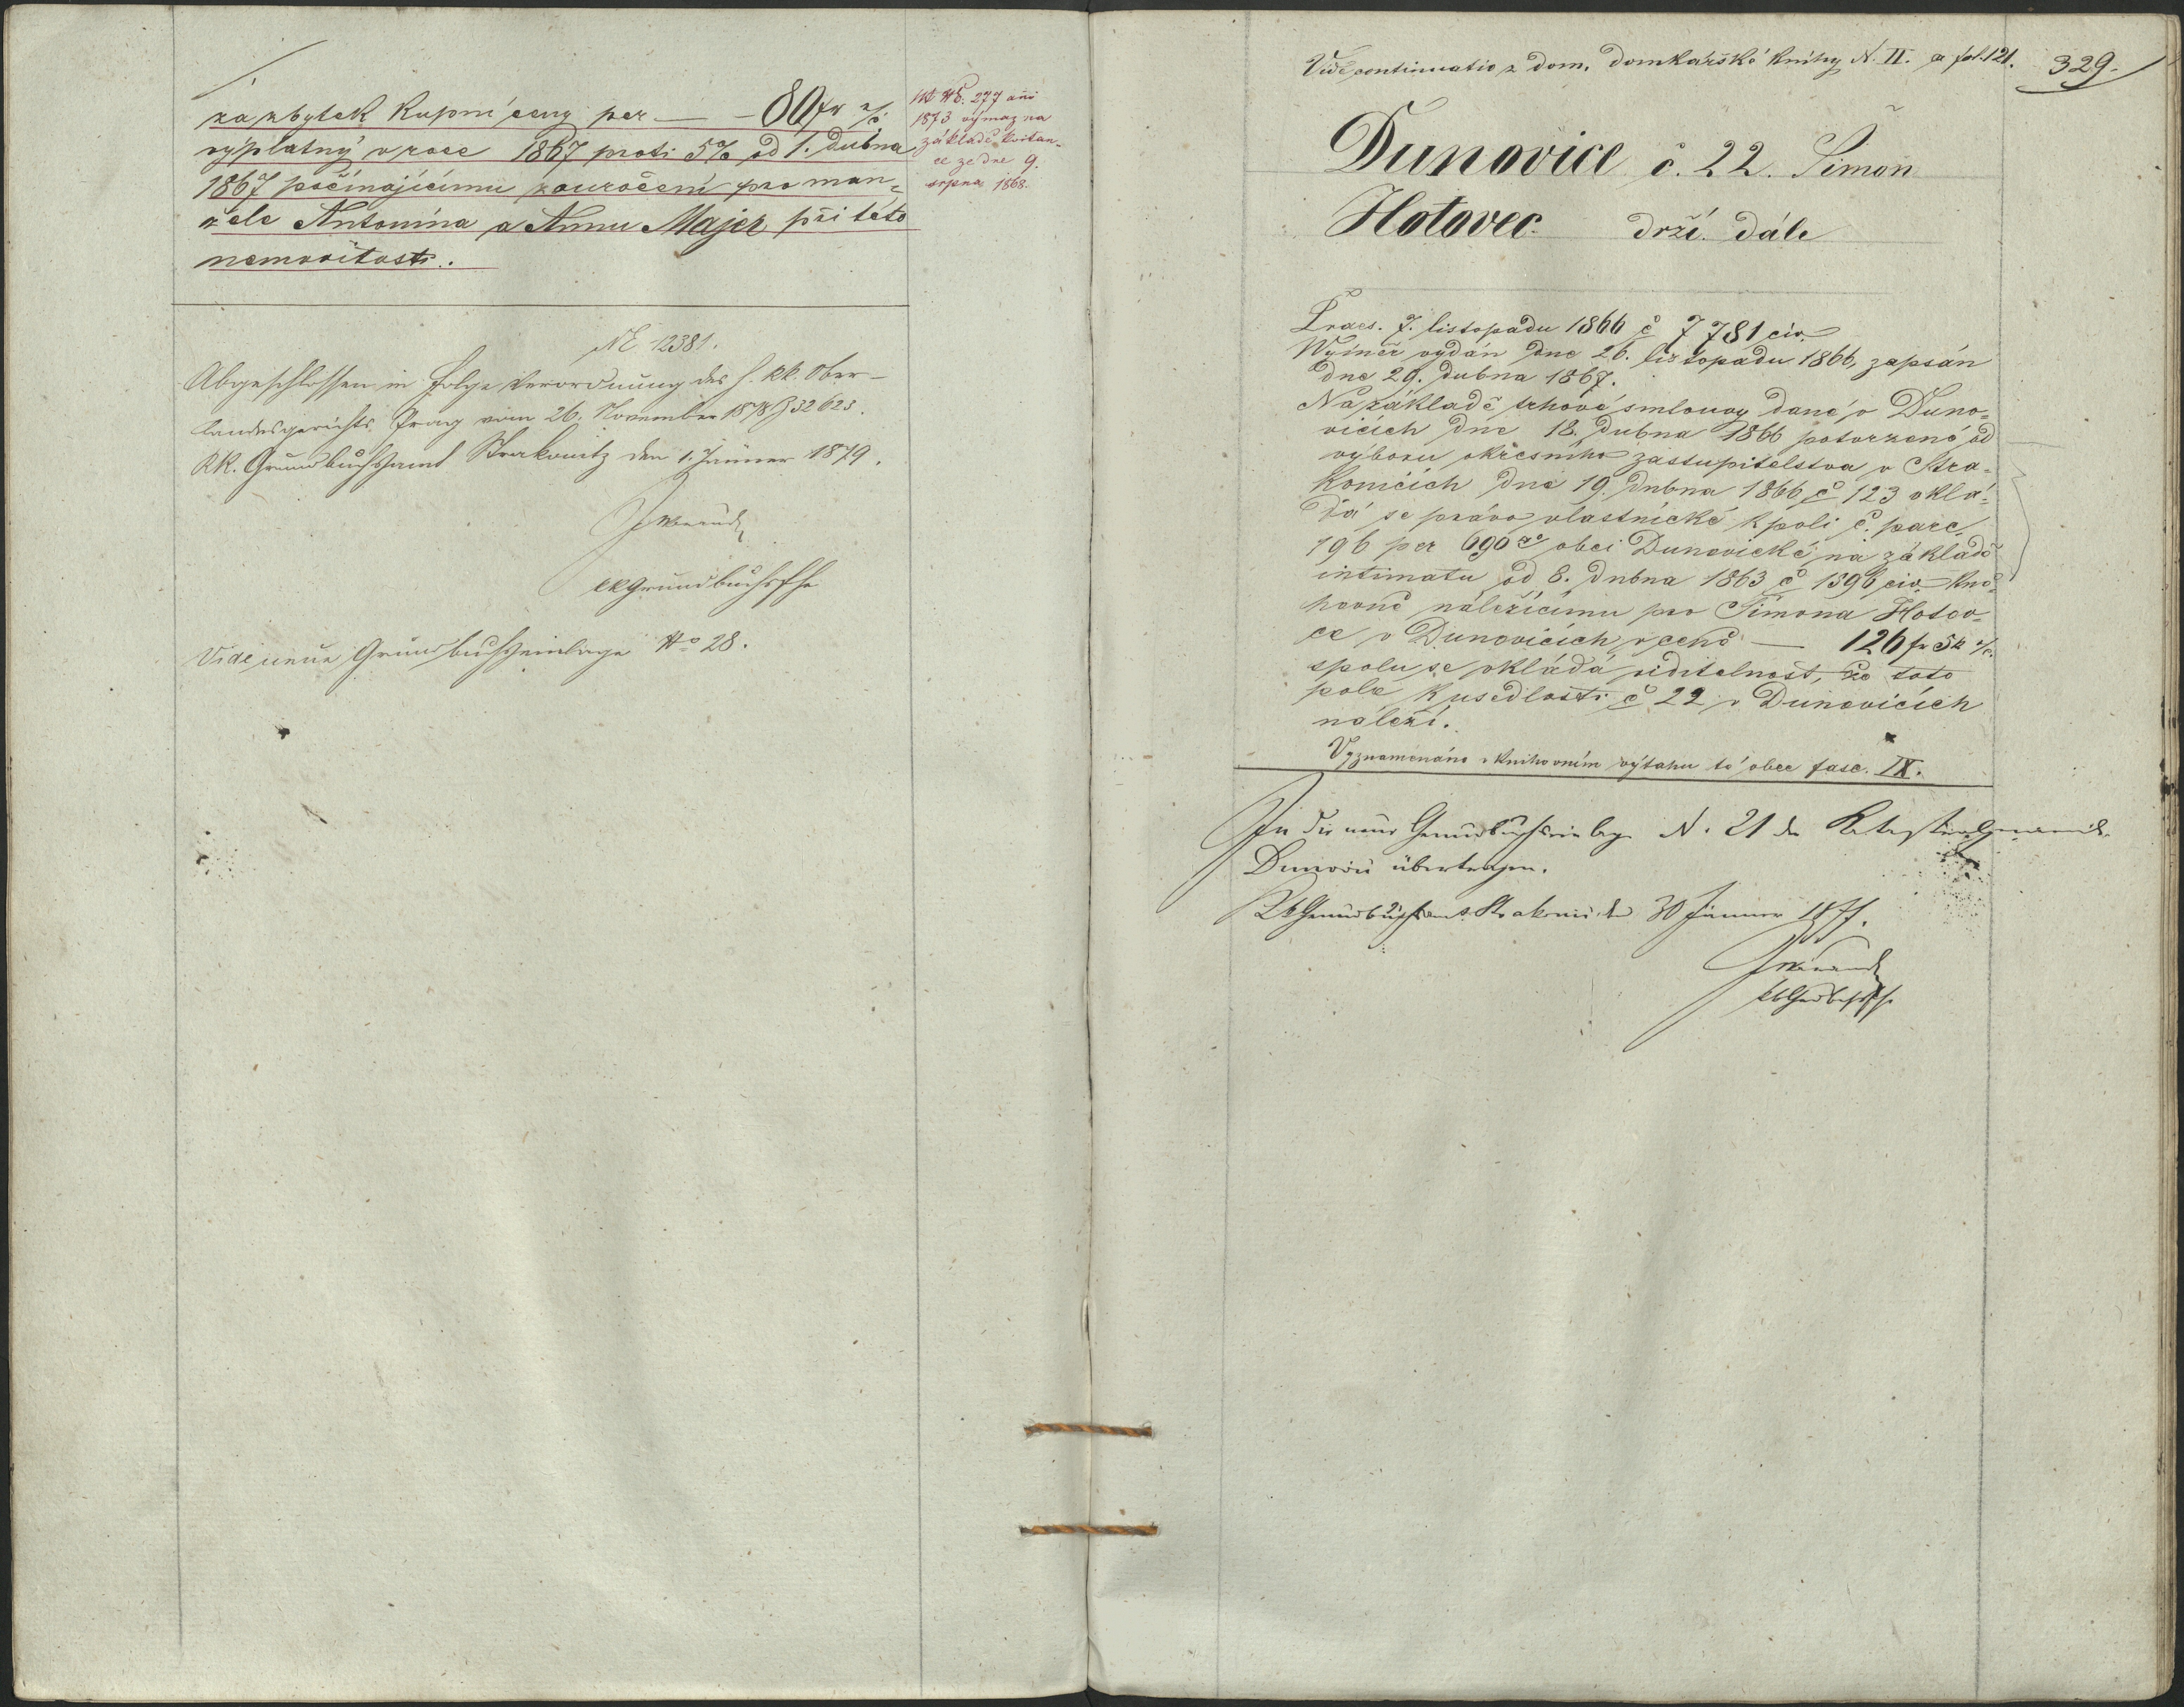 za zbytek kupní ceny per — — 80 fr
výplatný v roce 1867 proti 5% od 1. dubna
1867 počínajícímu zouročení pro man=
žele Antonína a Annu Majer při této
nemovitosti.
NE. 277 anno
1873 výmaz na
základě kvitan-
ce ze dne 9.
srpna 1868.
NE 12381.
Abgeschlossen in Folge Verordnung des h. kk. Ober-
landesgerichts Prag vom 26. November 1878 Z 32623.
KK. Grundbuchsamt Strakonitz den 1. Jänner 1879.
kk Grundbuchsfhr
Vide neue Grundbuchseinlage No 28.
Vide continuatio z dom. domkařské knihy N. II. a fol. 121.
329.
Dunovice č. 22. Šimon
Hotovec drží dále
Praes. 7. listopadu 1866 č 7781 civ.
Wýměr vydán dne 26. listopadu 1866, zapsán
dne 29. dubna 1867.
Na základě trhové smlouvy dané v Duno=
vicích dne 18. dubna 1866 potvrzené od
výboru okresního zastupitelstva v Stra=
konicích dne 19. dubna 1866 č 123 vklá=
dá se právo vlastnické k poli č. parc.
196 per 690 obci Dunovické na základě
intimatu od 8. dubna 1863 č 1396 civ. kni=
hovně náležícímu pro Šimona Hotov=
ce v Dunovicích v ceně — 126 fr 5 k
spolu se vkládá viditelnost, že toto
pole k usedlosti č 22 v Dunovicích
náleží.
Vyznamenáno v knihovním výtahu té obce fasc. IX.
In die neue Grundbuchseinlage N. 21 der Katastralgemeinde
Dunovic übertragen.
KK Grundbuchsamt Strakonic den 30 Jänner 1877.